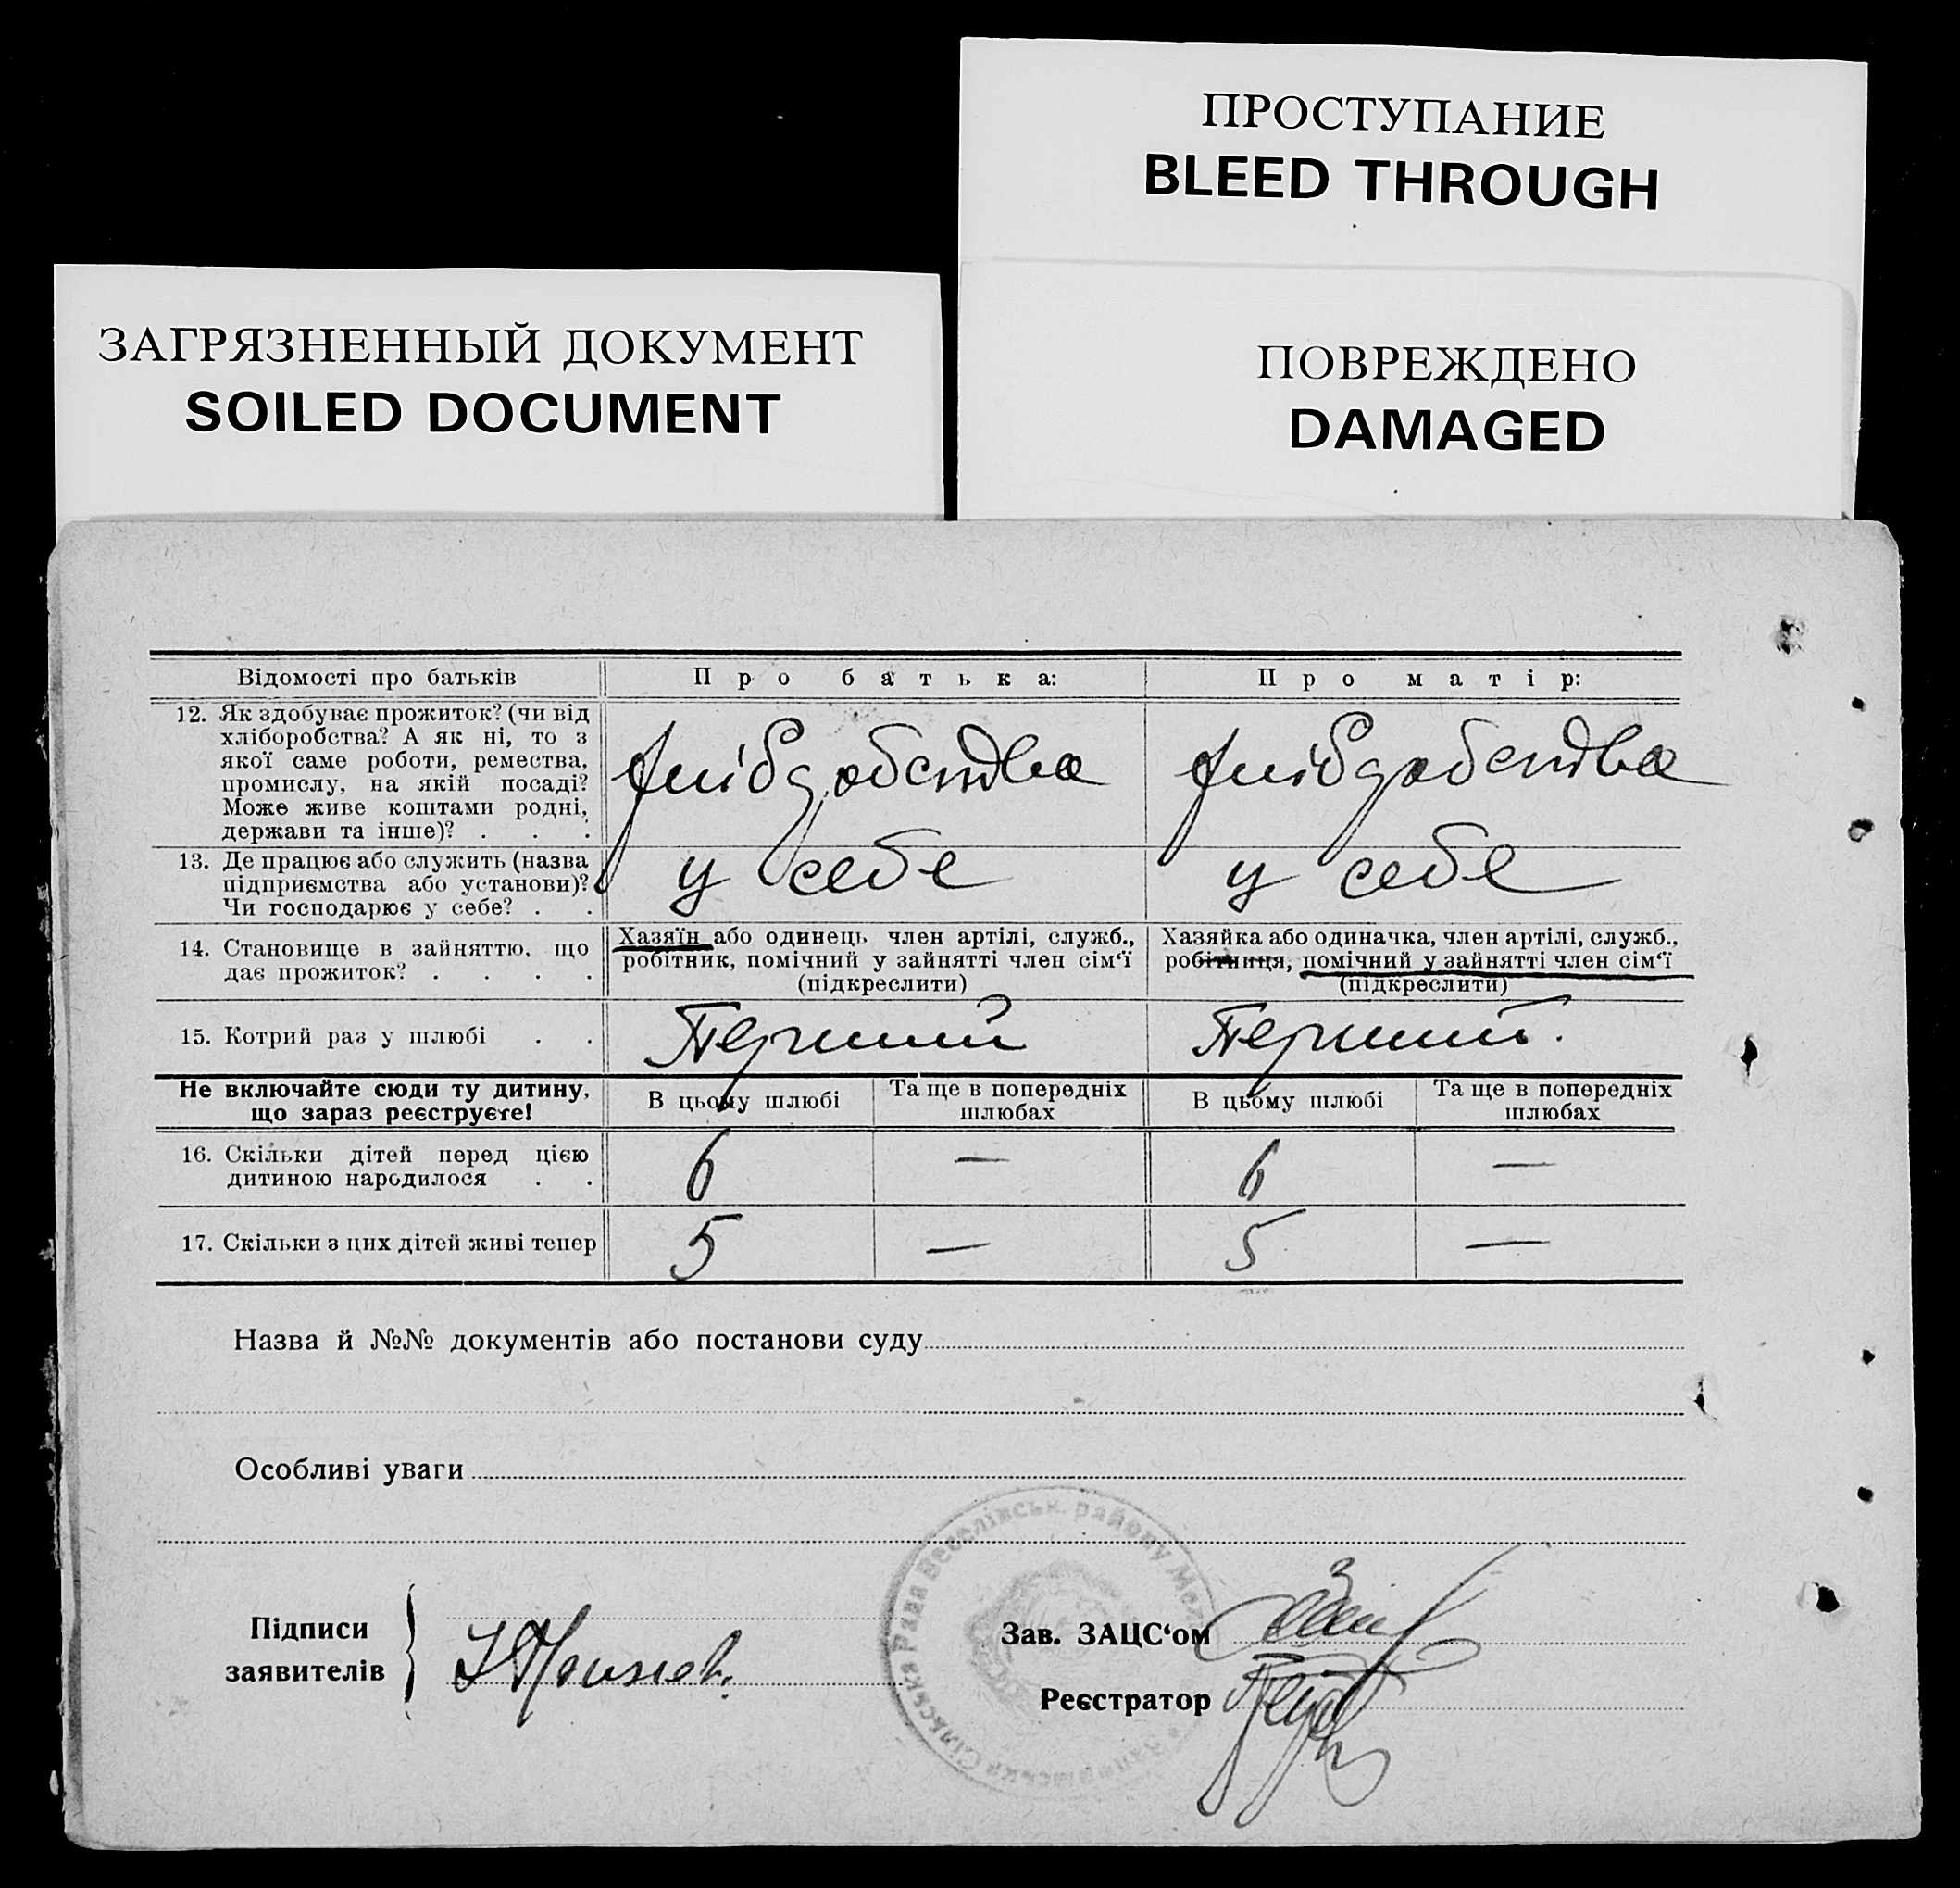 ПРОСТУПАНИЕ
BLEED THROUGH
ЗАГРЯЗНЕННЫЙ ДОКУМЕНТ
SOILED DOCUMENT
ПОВРЕЖДЕНО
DAMAGED
Відомості про батьків
Про батька:
Про матір:
12. Як здобуває прожиток? (чи від
хліборобства? А як ні, то з
якої саме роботи, ремества,
промислу, на якій посаді?
Може живе коштами родні,
держави та інше)? . . .
хлібробства
хлібробства
13. Де працює або служить (назва
підприємства або установи)?
Чи господарює у себе? . .
у себе
у себе
14. Становище в зайняттю, що
дає прожиток? . . . .
Хазяїн або одинець член артілі, служб.,
робітник, помічний у зайнятті член сім‘ї
(підкреслити)
Хазяйка або одиначка, член артілі, служб.,
робітниця, помічний у зайнятті член сім‘ї
(підкреслити)
15. Котрий раз у шлюбі . .
Перший
Перший.
Не включайте сюди ту дитину,
що зараз реєструєте!
В цьому шлюбі
Та ще в попередніх
шлюбах
В цьому шлюбі
Та ще в попередніх
шлюбах
16. Скільки дітей перед цією
дитиною народилося . .
6
—
6
—
17. Скільки з цих дітей живі тепер
5
—
5
—
Назва й №№ документів або постанови суду
Особливі уваги
Сільська Рада Веселівськ. району
Підписи
заявителів
Зав. ЗАЦС‘ом
Реєстратор